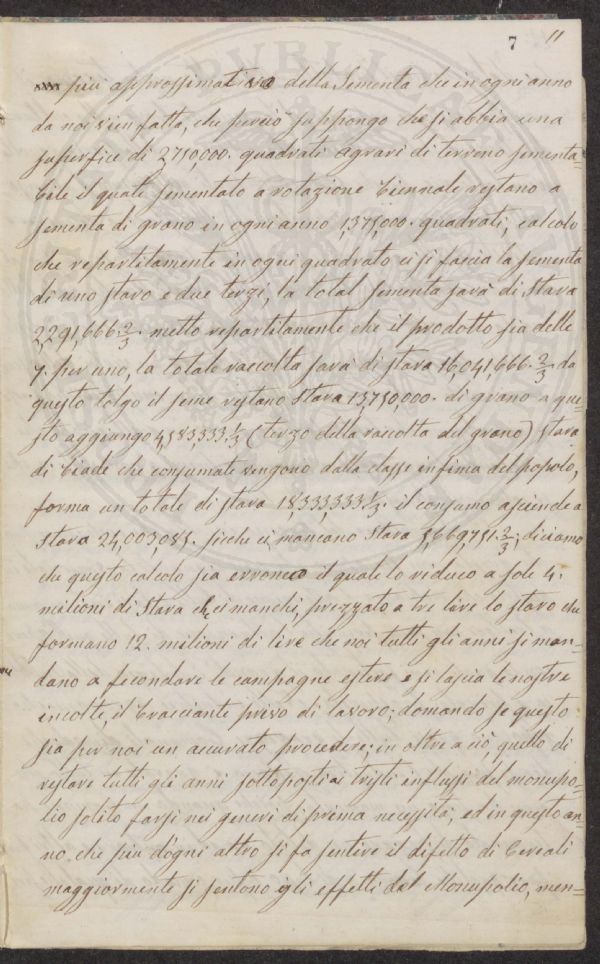 7 11
più approssimativo della Sementa che in ogni anno
da noi vien fatta, che perciò suppongo che si abbia una
superfice di 2750,000. quadrati agrari di terreno sementa=
bile il quale sementato a rotazione biennale restano a
sementa di grano in ogni anno 1,375,000. quadrati, calcolo
che repartitamente in ogni quadrato ci si faccia la sementa
di uno staro e due terzi, la total sementa sarà di Stara
2,291,666 2/3. metto repartitamente che il prodotto sia delle
7. per uno, la totale raccolta sarà di stara 16,041,666. 2/3 da
questo tolgo il seme restano Stara 13,750,000. di grano a que=
sto aggiungo 4,583,333 1/3 (terzo della raccolta del grano) stara
di biade che consumate vengono dalla classe infima del popolo,
forma un totale di stara 18,333,333 1/3. il consumo ascende a
Stara 24,003,085. sicche ci mancano Stara 5,669,751 2/3; diciamo
che questo calcolo sia erroneo il quale lo riduco a sole 4.
milioni di Stara che ci manchi, prezzato a tre lire lo staro che
formano 12. milioni di lire che noi tutti gli anni si man=
dano a fecondare le campagne estere e si lascia le nostre
incolte, il bracciante privo di lavoro; domando se questo
sia per noi un accurato procedere; in oltre a ciò, quello di
restare tutti gli anni sottoposti ai tristi influssi del monupo=
lio solito farsi nei generi di prima necessità; ed in questo an=
no che più d'ogni altro si fa sentire il difetto di Cereali
maggiormente si sentono gli effetti del Monupolio, men=